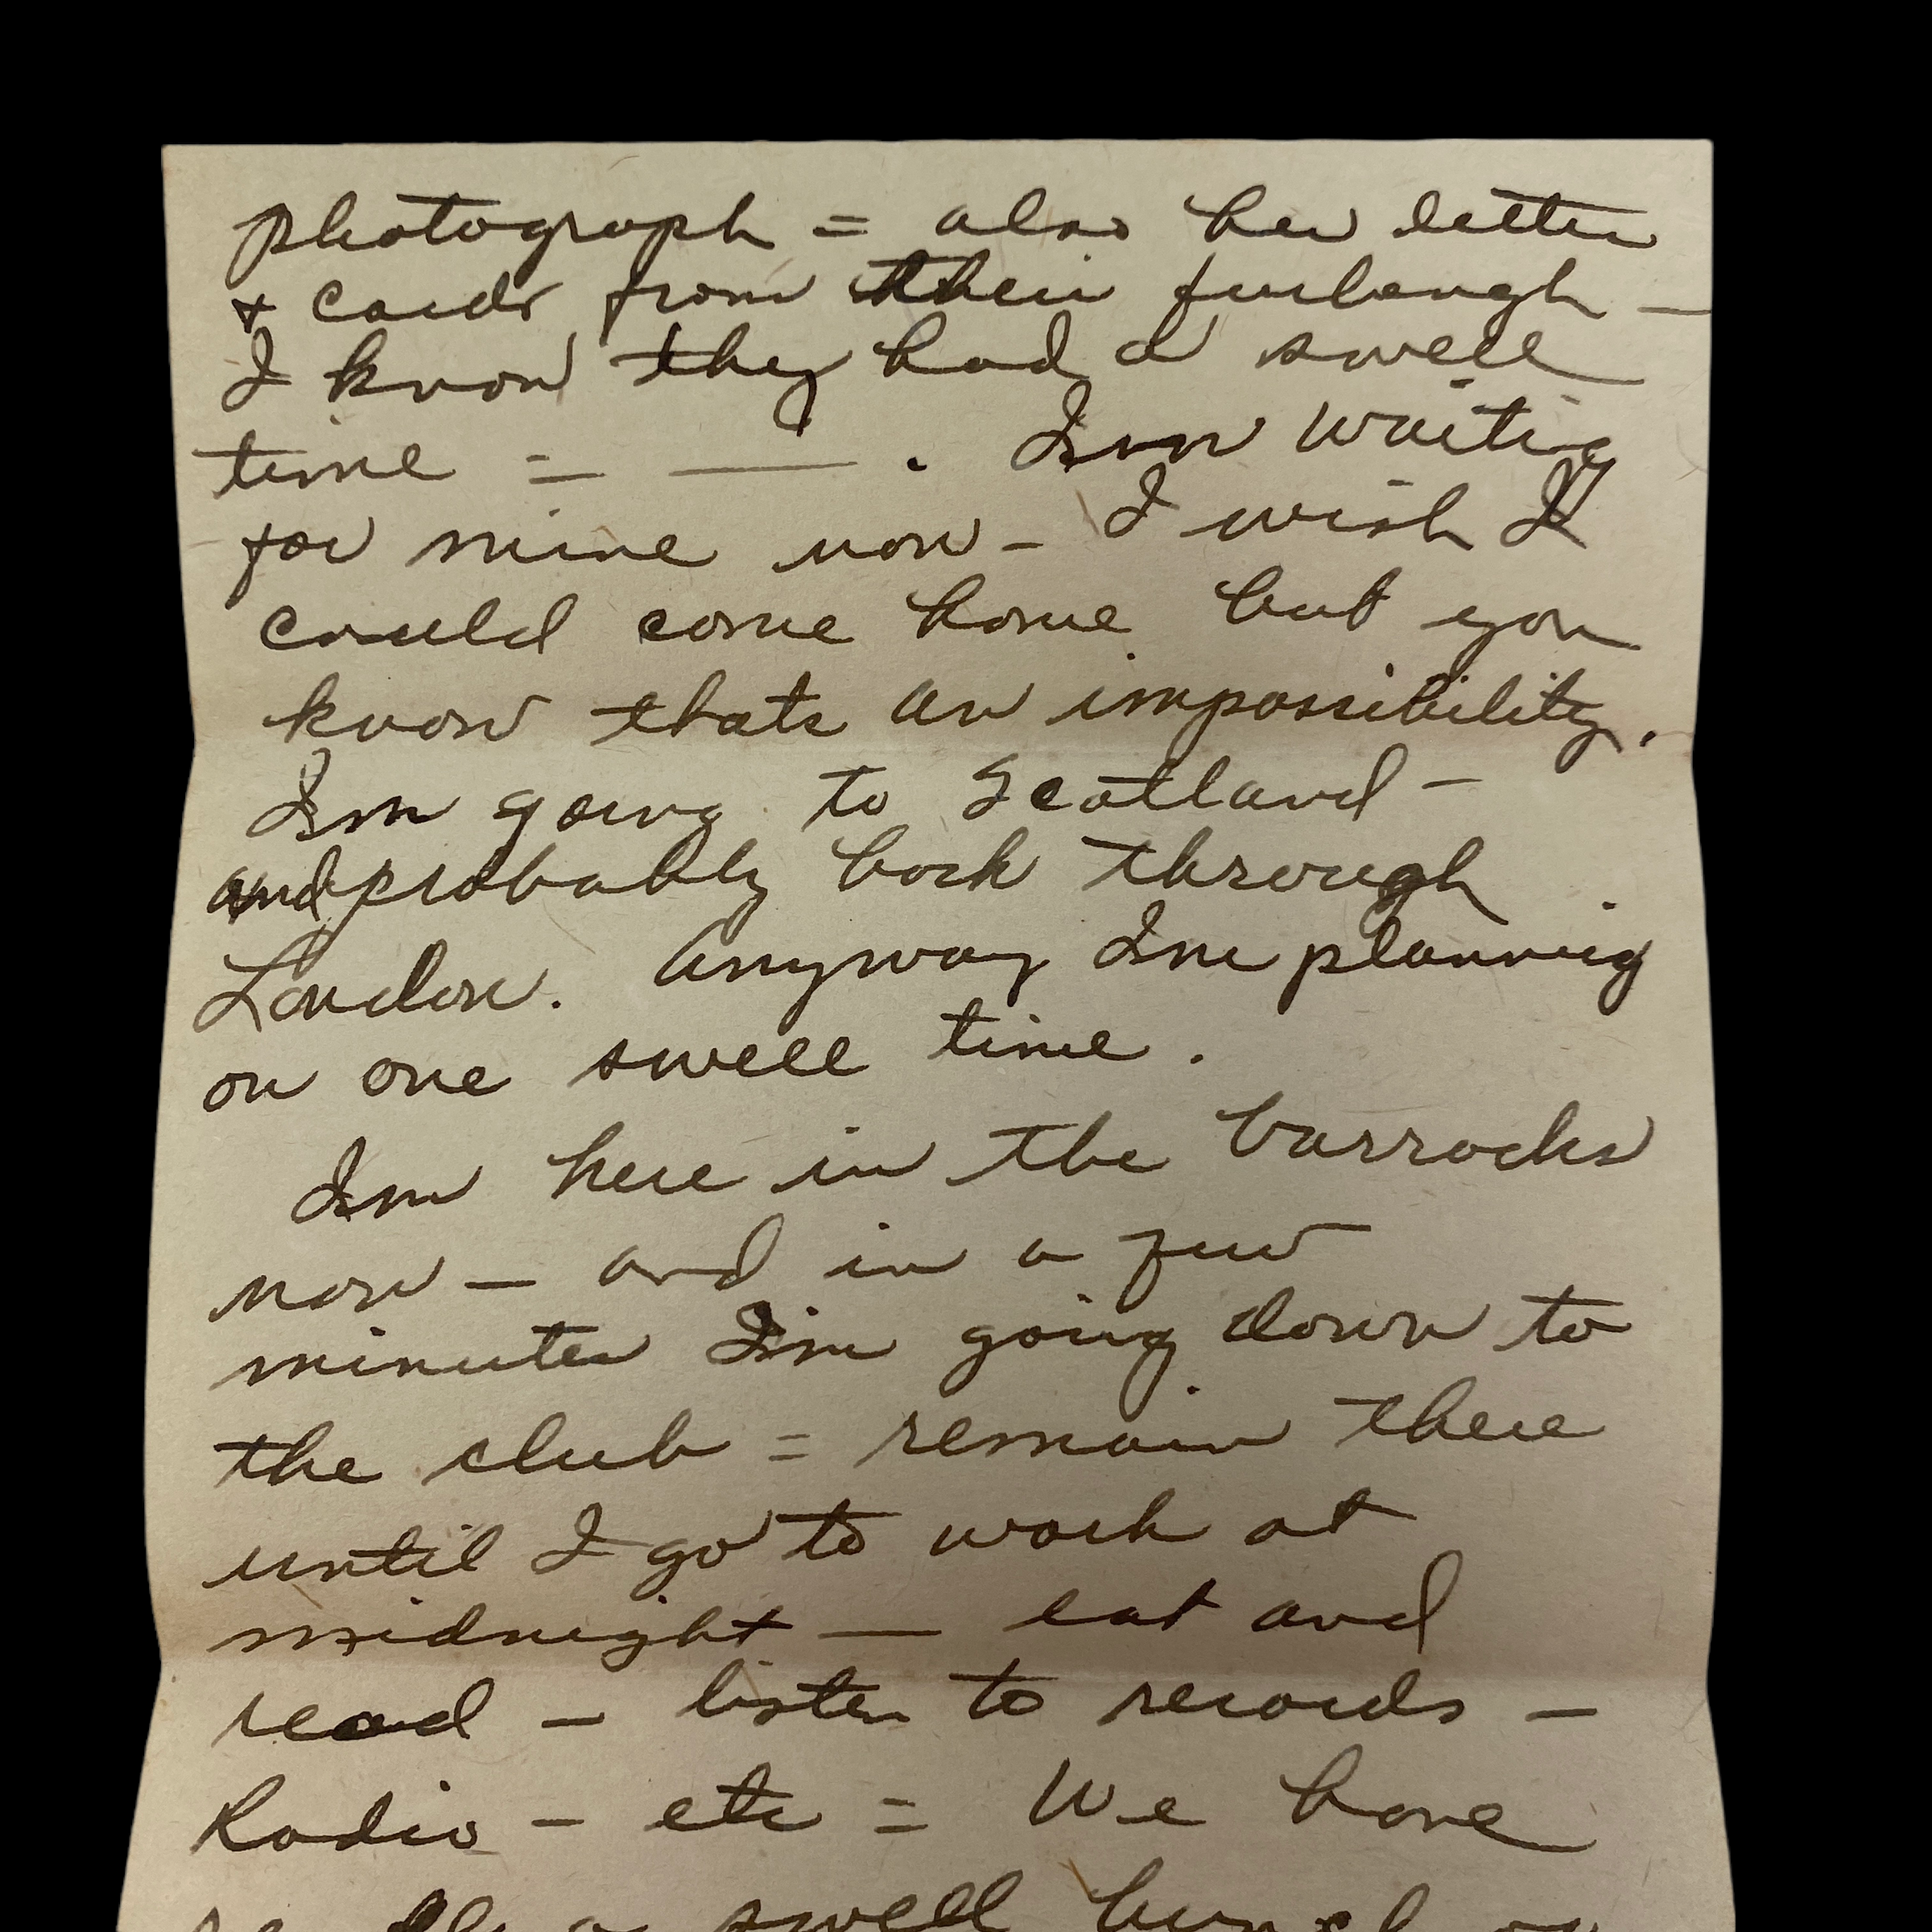 photograph = also her letter
+ cards from their furlough —
I know they had a swell
time = — . Im waiting
for mine now - I wish I
could come home but you
know thats an impossibility.
Im going to Scotland -
and probably back through
London. Anyway Im planning
on one swell time.
Im here in the barracks
now — and in a few
minutes Im going down to
the club = remain there
until I go to work at
midnight — eat and
read — listen to records —
Radio - etc = We have
a swell bunch